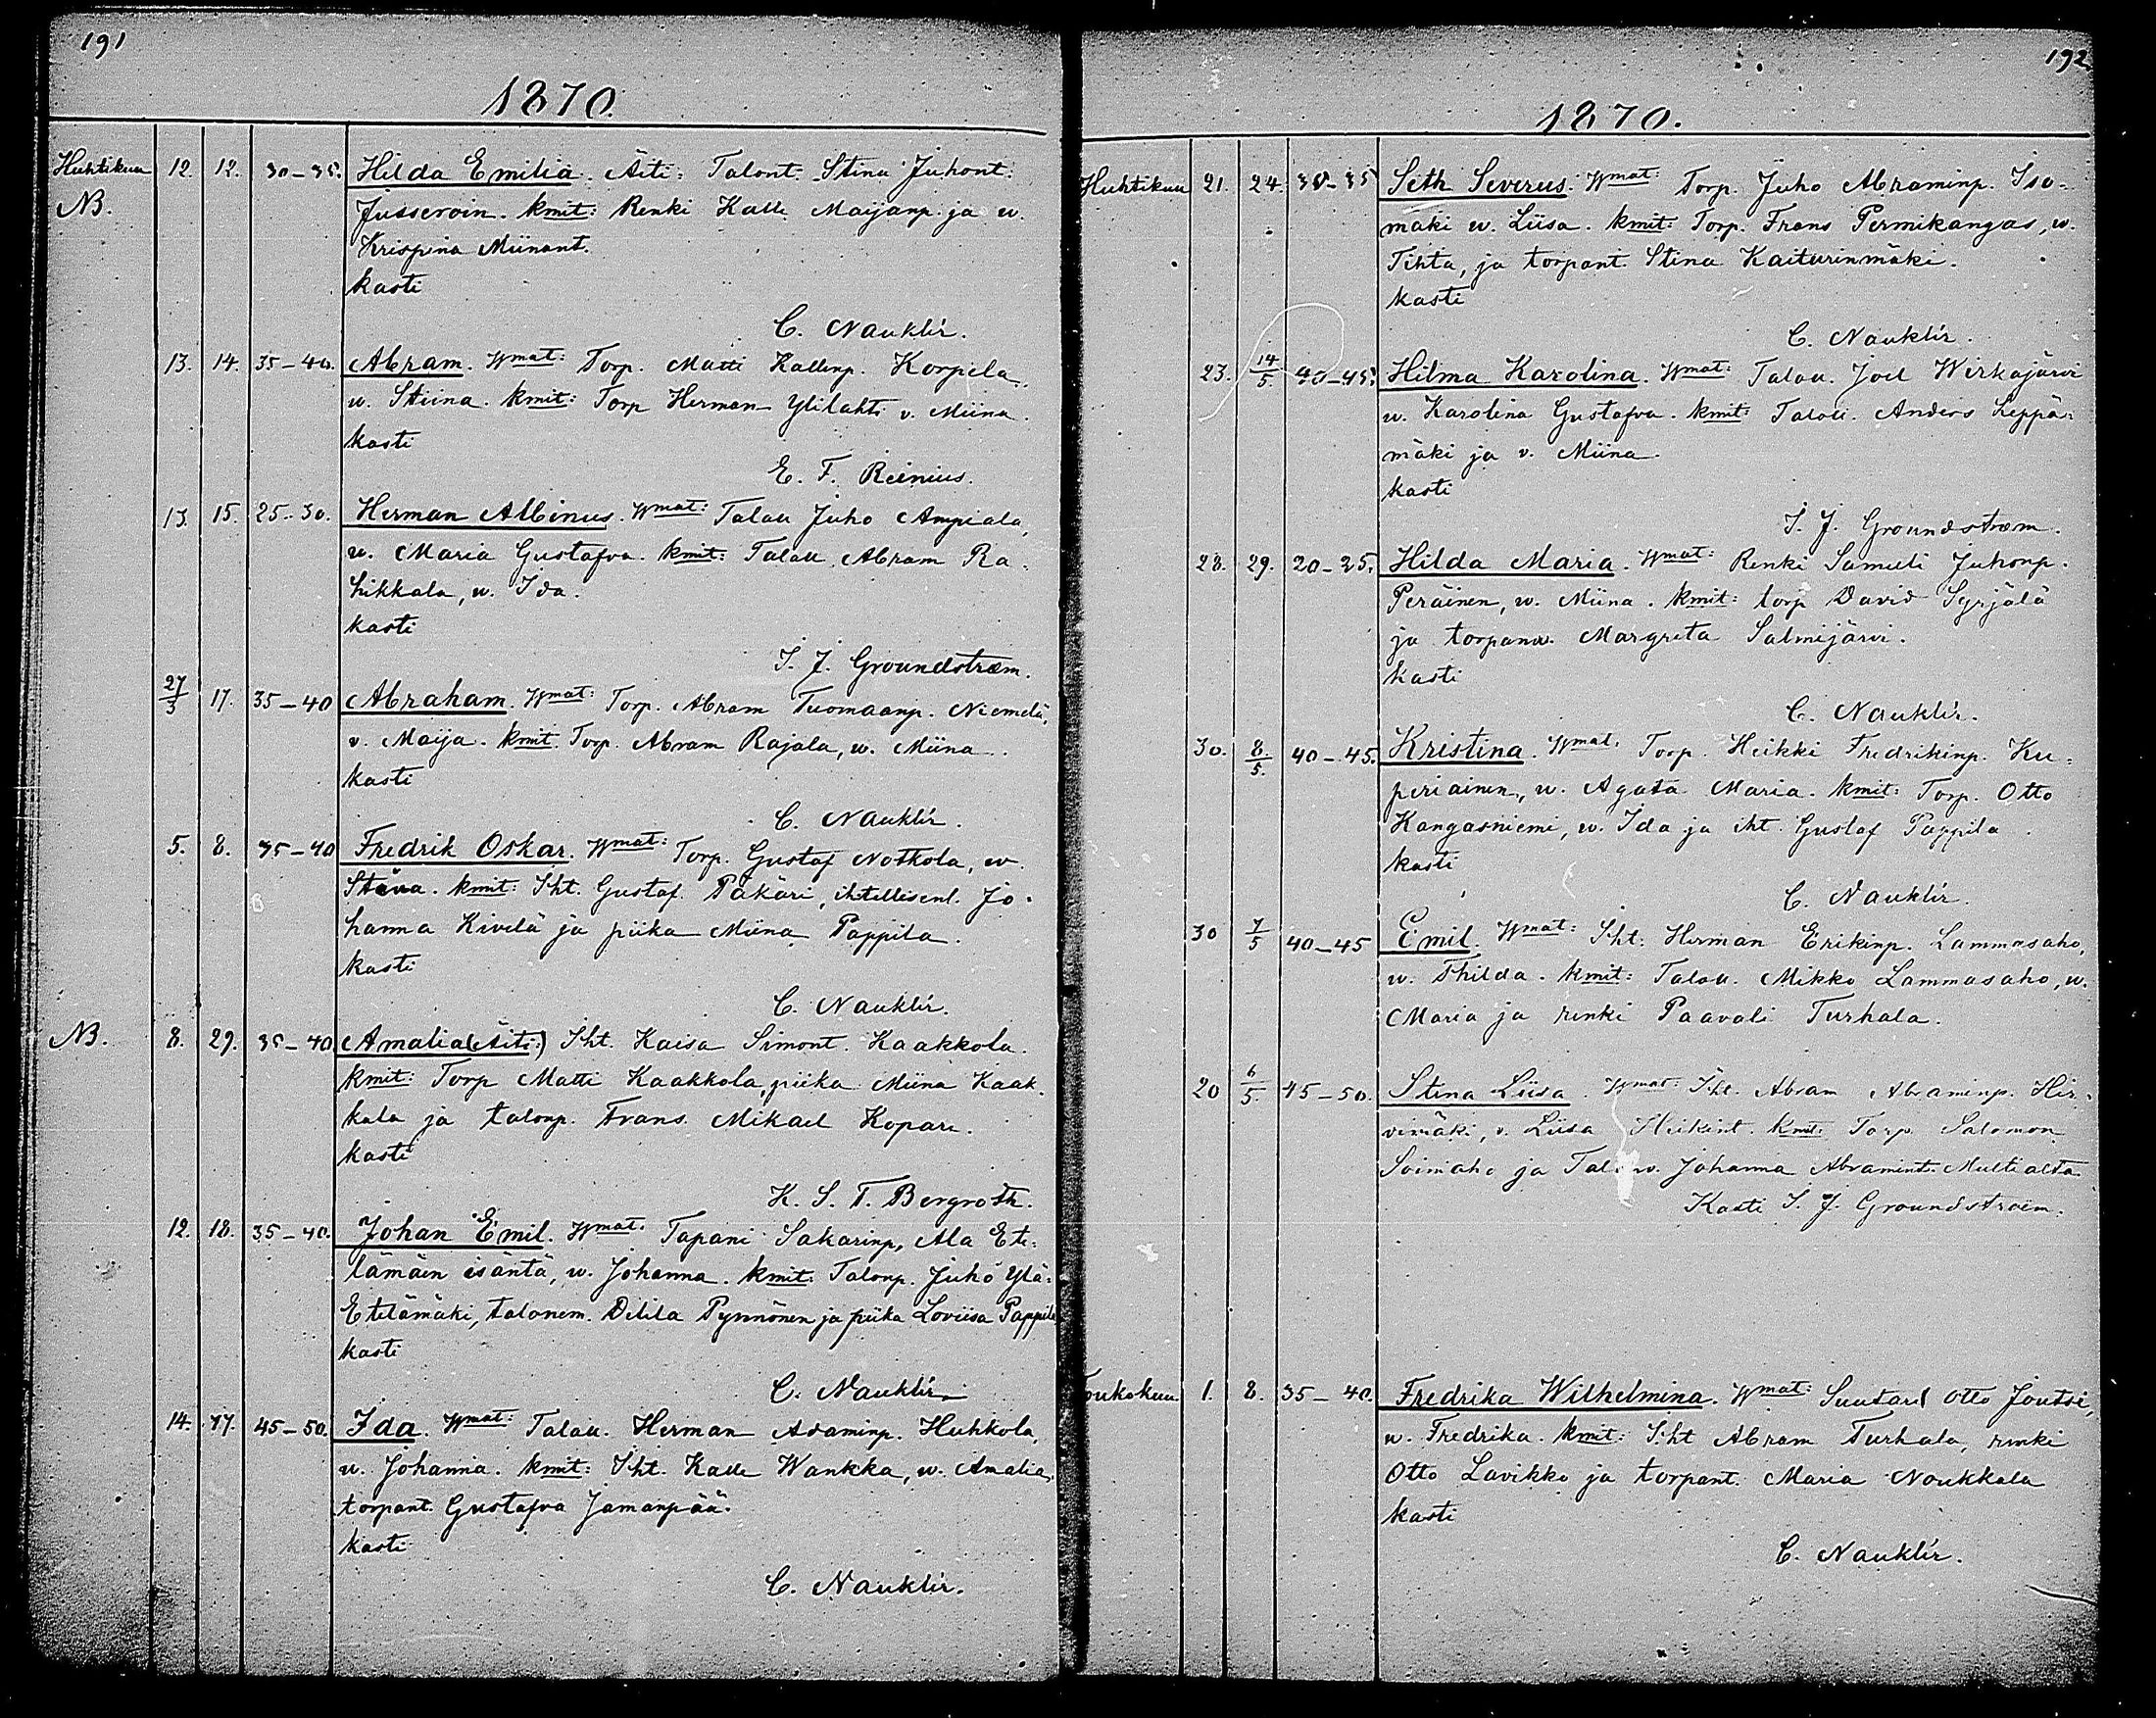 191
1870.
Huhtikuu 12. 12. 30-35. Hilda Emilia. Äiti: Talont. Stina Juhont.
NB. Jusseroin. kmit: Renki Kalle Maijanp. ja w.
Krispina Miinant.
kasti
C. Nauklér.
13. 14. 35-40. Abram. Wmat: Torp. Matti Kallenp. Korpela,
w. Stiina. kmit: Torp Herman Ylilahti v. Miina.
kasti
E. F. Reinius.
13. 15. 25-30. Herman Albinus. Wmat: Talall Juho Ampiala,
w. Maria Gustafva. kmit: Talall. Abram Ra-
hikkala, w. Ida.
kasti
I. J. Groundstræm.
27/3 17. 35-40 Abraham. Wmat: Torp. Abram Tuomaanp. Niemelä,
v. Maija. kmit. Torp. Abram Rajala, w. Miina.
kasti
C. Nauklér.
5. 8. 35-40 Fredrik Oskar. Wmat: Torp. Gustaf Notkola, w.
Stina. kmit: Iht. Gustaf. Pakari, ihtellisenl. Jo-
hanna Kivelä ja piika Miina Pappila.
kasti
C. Nauklér.
NB. 8. 29. 35-40 Amalia (Äiti:) Iht. Kaisa Simont. Kaakkola.
kmit: Torp Matti Kaakkola, piika Miina Kaak-
kola ja talonp. Frans. Mikael Kopare.
kasti
K. S. T. Bergroth.
12. 18. 35-40. Johan Emil. Wmat. Tapani Sakarinp, Ala Ete-
lämäen isäntä, w. Johanna. kmit: Talonp. Juho Ylä-
Etelämäki, talonem. Delila Pynnönen ja piika Loviisa Pappila
kasti
C. Nauklér.
14. 17. 45-50. Ida. Wmat: Talall. Herman Adaminp. Huhkola,
w. Johanna. kmit: Iht. Kalle Wankka, w. Amalia,
torpant. Gustafva Jamanpää.
kasti
C. Nauklér.
192.
1870.
Huhtikuu 21. 24. 30-35 Seth Severus. Wmat: Torp. Juho Abraminp. Iso-
mäki w. Liisa. kmit: Torp. Frans Permikangas, w.
Tihta, ja torpant. Stina Kaiturinmäki.
kasti
C. Nauklér.
23. 14/5 40-45. Hilma Karolina. Wmat: Talall. Joel Wirkajärvi
w. Karolina Gustafva. kmit: Talall. Anders Leppä-
mäki ja v. Miina.
kasti
I. J. Groundstræm.
28. 29. 20-25. Hilda Maria. Wmat: Renki Samuli Juhonp.
Peräinen, w. Miina. kmit: torp David Syrjälä
ja torpanw. Margreta Salmijärvi.
kasti
C. Nauklér.
30. 8/5. 40-45. Kristina. Wmat. Torp. Heikki Fredrikinp. Ku-
periainen, w. Agata Maria. kmit: Torp. Otto
Kangasniemi, w. Ida ja iht. Gustaf Pappila
kasti
C. Nauklér.
30 7/5 40-45 Emil. Wmat: Iht. Herman Erikinp. Lammasaho,
w. Thilda. kmit: Talall. Mikko Lammasaho, w.
Maria ja renki Paavali Turhala.
20 6/5. 45-50. Stina Liisa. Wmat: Iht. Abram Abraminp. Hir-
vimäki, v. Liisa Heikint. kmit: Torp. Salomon
Soiniaho ja Johanna Abramint. Multialta.
Kasti I. J. Groundstroëm.
Toukokuu 1. 8. 35-40. Fredrika Wilhelmina. Wmat: Suutari Otto Joutsi,
w. Fredrika. kmit: Iht Abram Turhala, renki
Otto Lavikko ja torpant. Maria Noukkala
kasti
C. Nauklér.